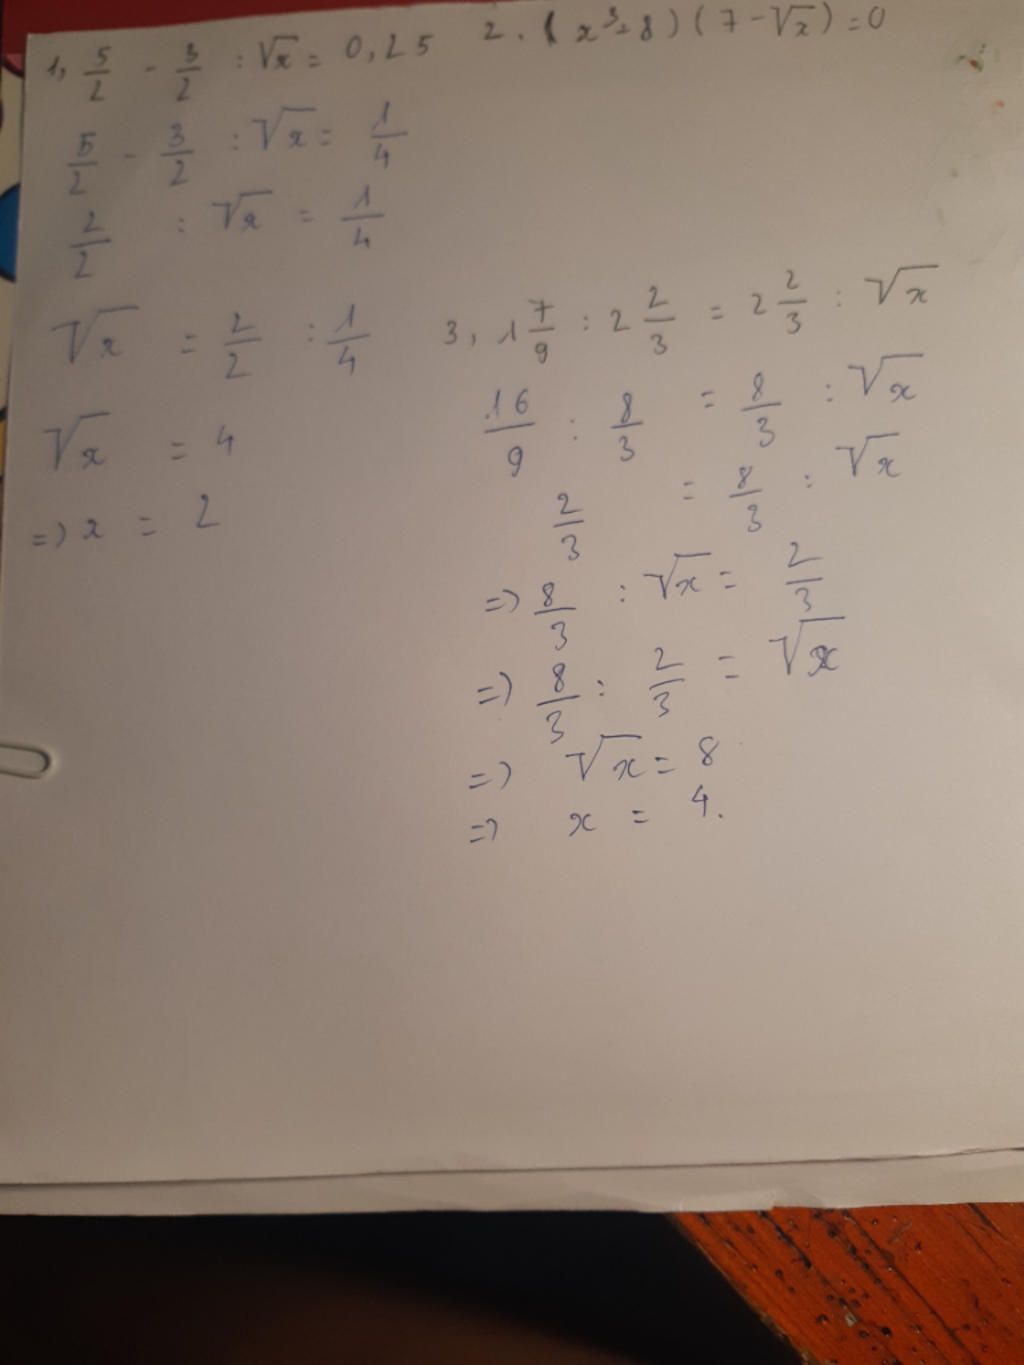 1, 5/2 - 3/2 : √x = 0,25
5/2 - 3/2 : √x = 1/4
2/2 : √x = 1/4
√x = 2/2 : 1/4
√x = 4
=> x = 2
2. (x³-8)(7-√x)=0
3, 1 7/9 : 2 2/3 = 2 2/3 : √x
16/9 : 8/3 = 8/3 : √x
2/3 = 8/3 : √x
=> 8/3 : √x = 2/3
=> 8/3 : 2/3 = √x
=> √x = 8
=> x = 4.